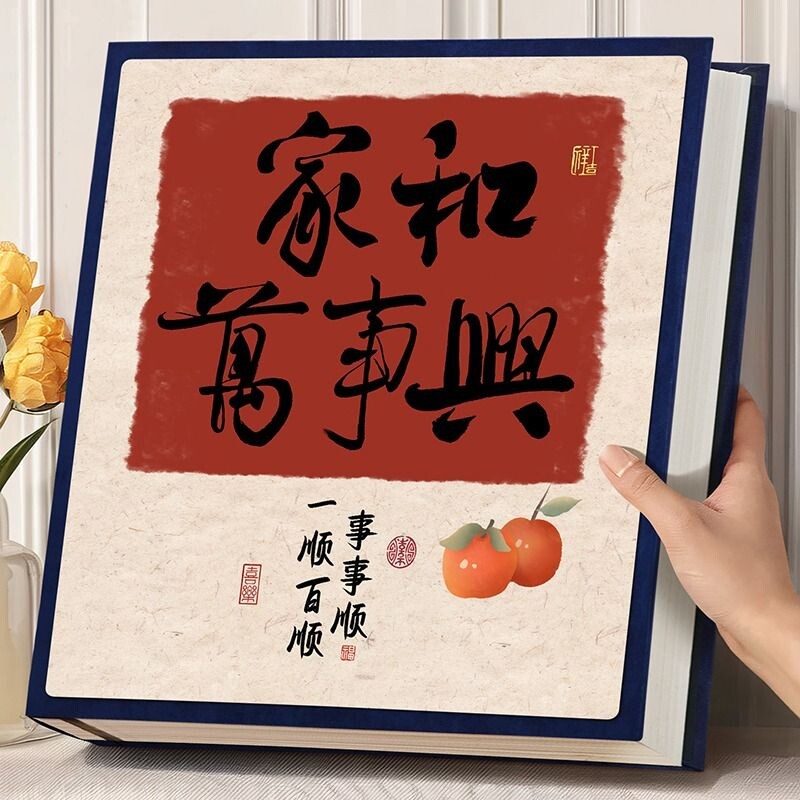 家和
萬事興
一顺百顺
事事顺
喜樂
福